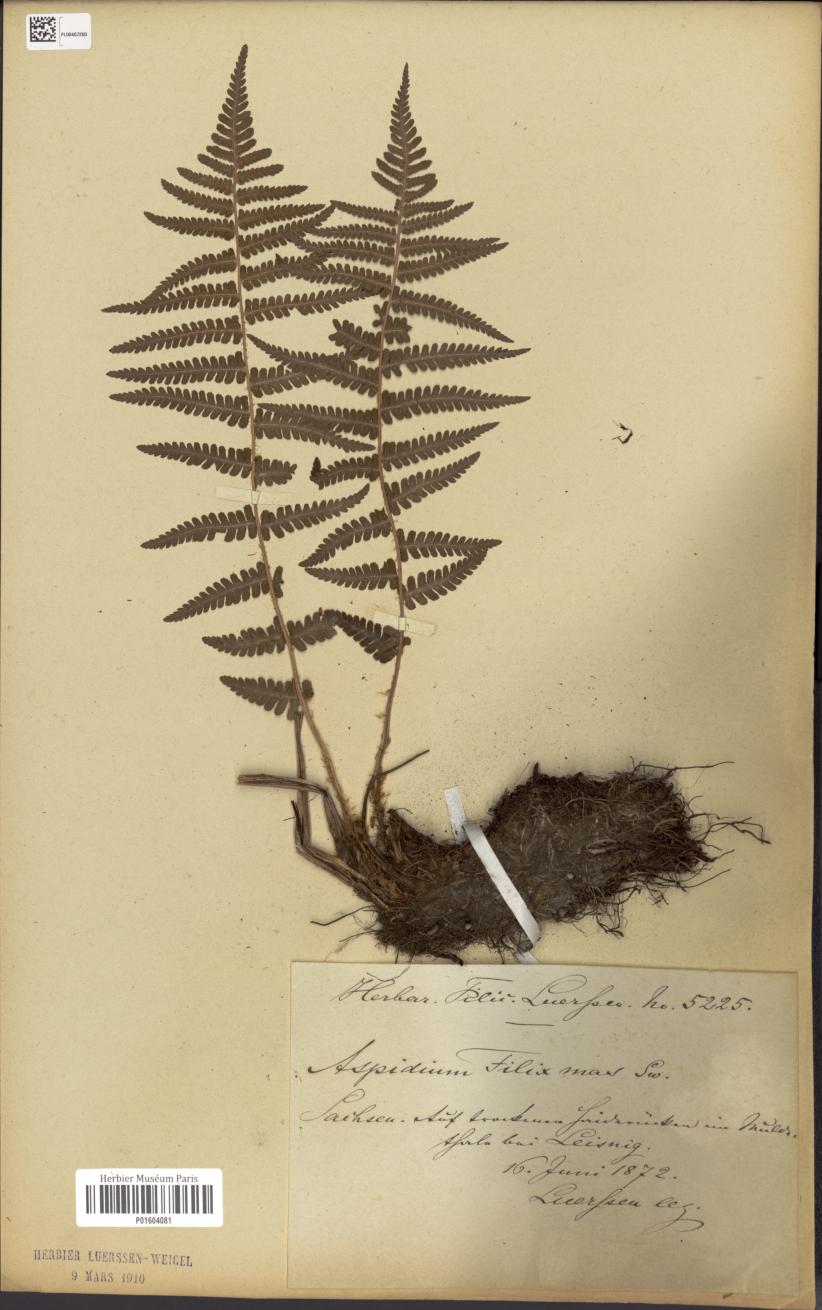 PL00407260
Herbar. Filic. Luerssen. No. 5225.
Aspidium Filix mas Sw.
Sachsen. Auf trockenem Haiderücken im Mulde-
thale bei Leisnig.
16. Juni 1872.
Luerssen leg.
Herbier Muséum Paris
P01604081
HERBIER LUERSSEN-WEIGEL
9 MARS 1910